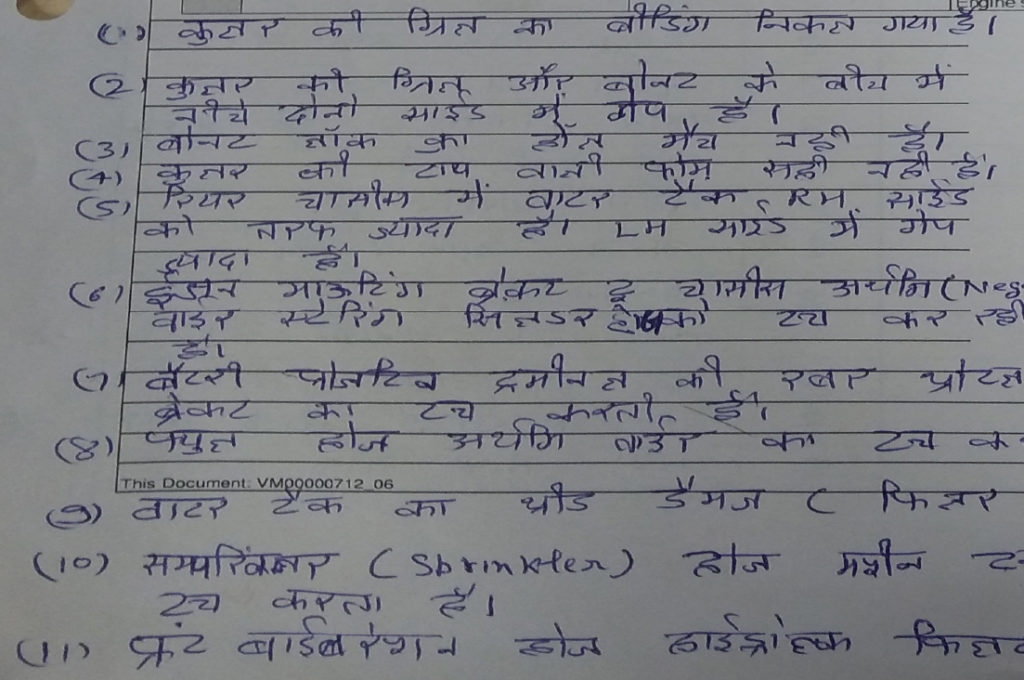 Engine s
(1) कुलर की ग्रिल का बीडिंग निकल गया है।
(2) कुलर की ग्रिल और बोनट के बीच में
नीचे दोनो साईड में गेप है।
(3) बोनट लॉक का होल मैच नही है।
(4) कुलर की टाप वाली फोम सही नही है।
(5) रियर चासीस में वाटर टैंक RH साईड
की तरफ ज्यादा है। LH साईड में गेप
ज्यादा है।
(6) इन्जन माऊटिंग ब्रेकट टू चासीस अर्थीग (Neg
वाइर स्टेरिंग सिलेंडर को टच कर रही
है।
(7) बैटरी पोजटिव ट्रमीनल की रबर प्रोटे
ब्रेकट का टच करती है।
(8) फ्युल होज अर्थीग वाईर का टच क
This Document: VM00000712_06
(9) वाटर टैंक का थ्रीड डैमेज ( फिलर
(10) सम्परिंक्लर (Sbrinkler) होज मशीन
टच करता है।
(11) फ्रंट बाईबरेशन होज हाईड्रोलिक